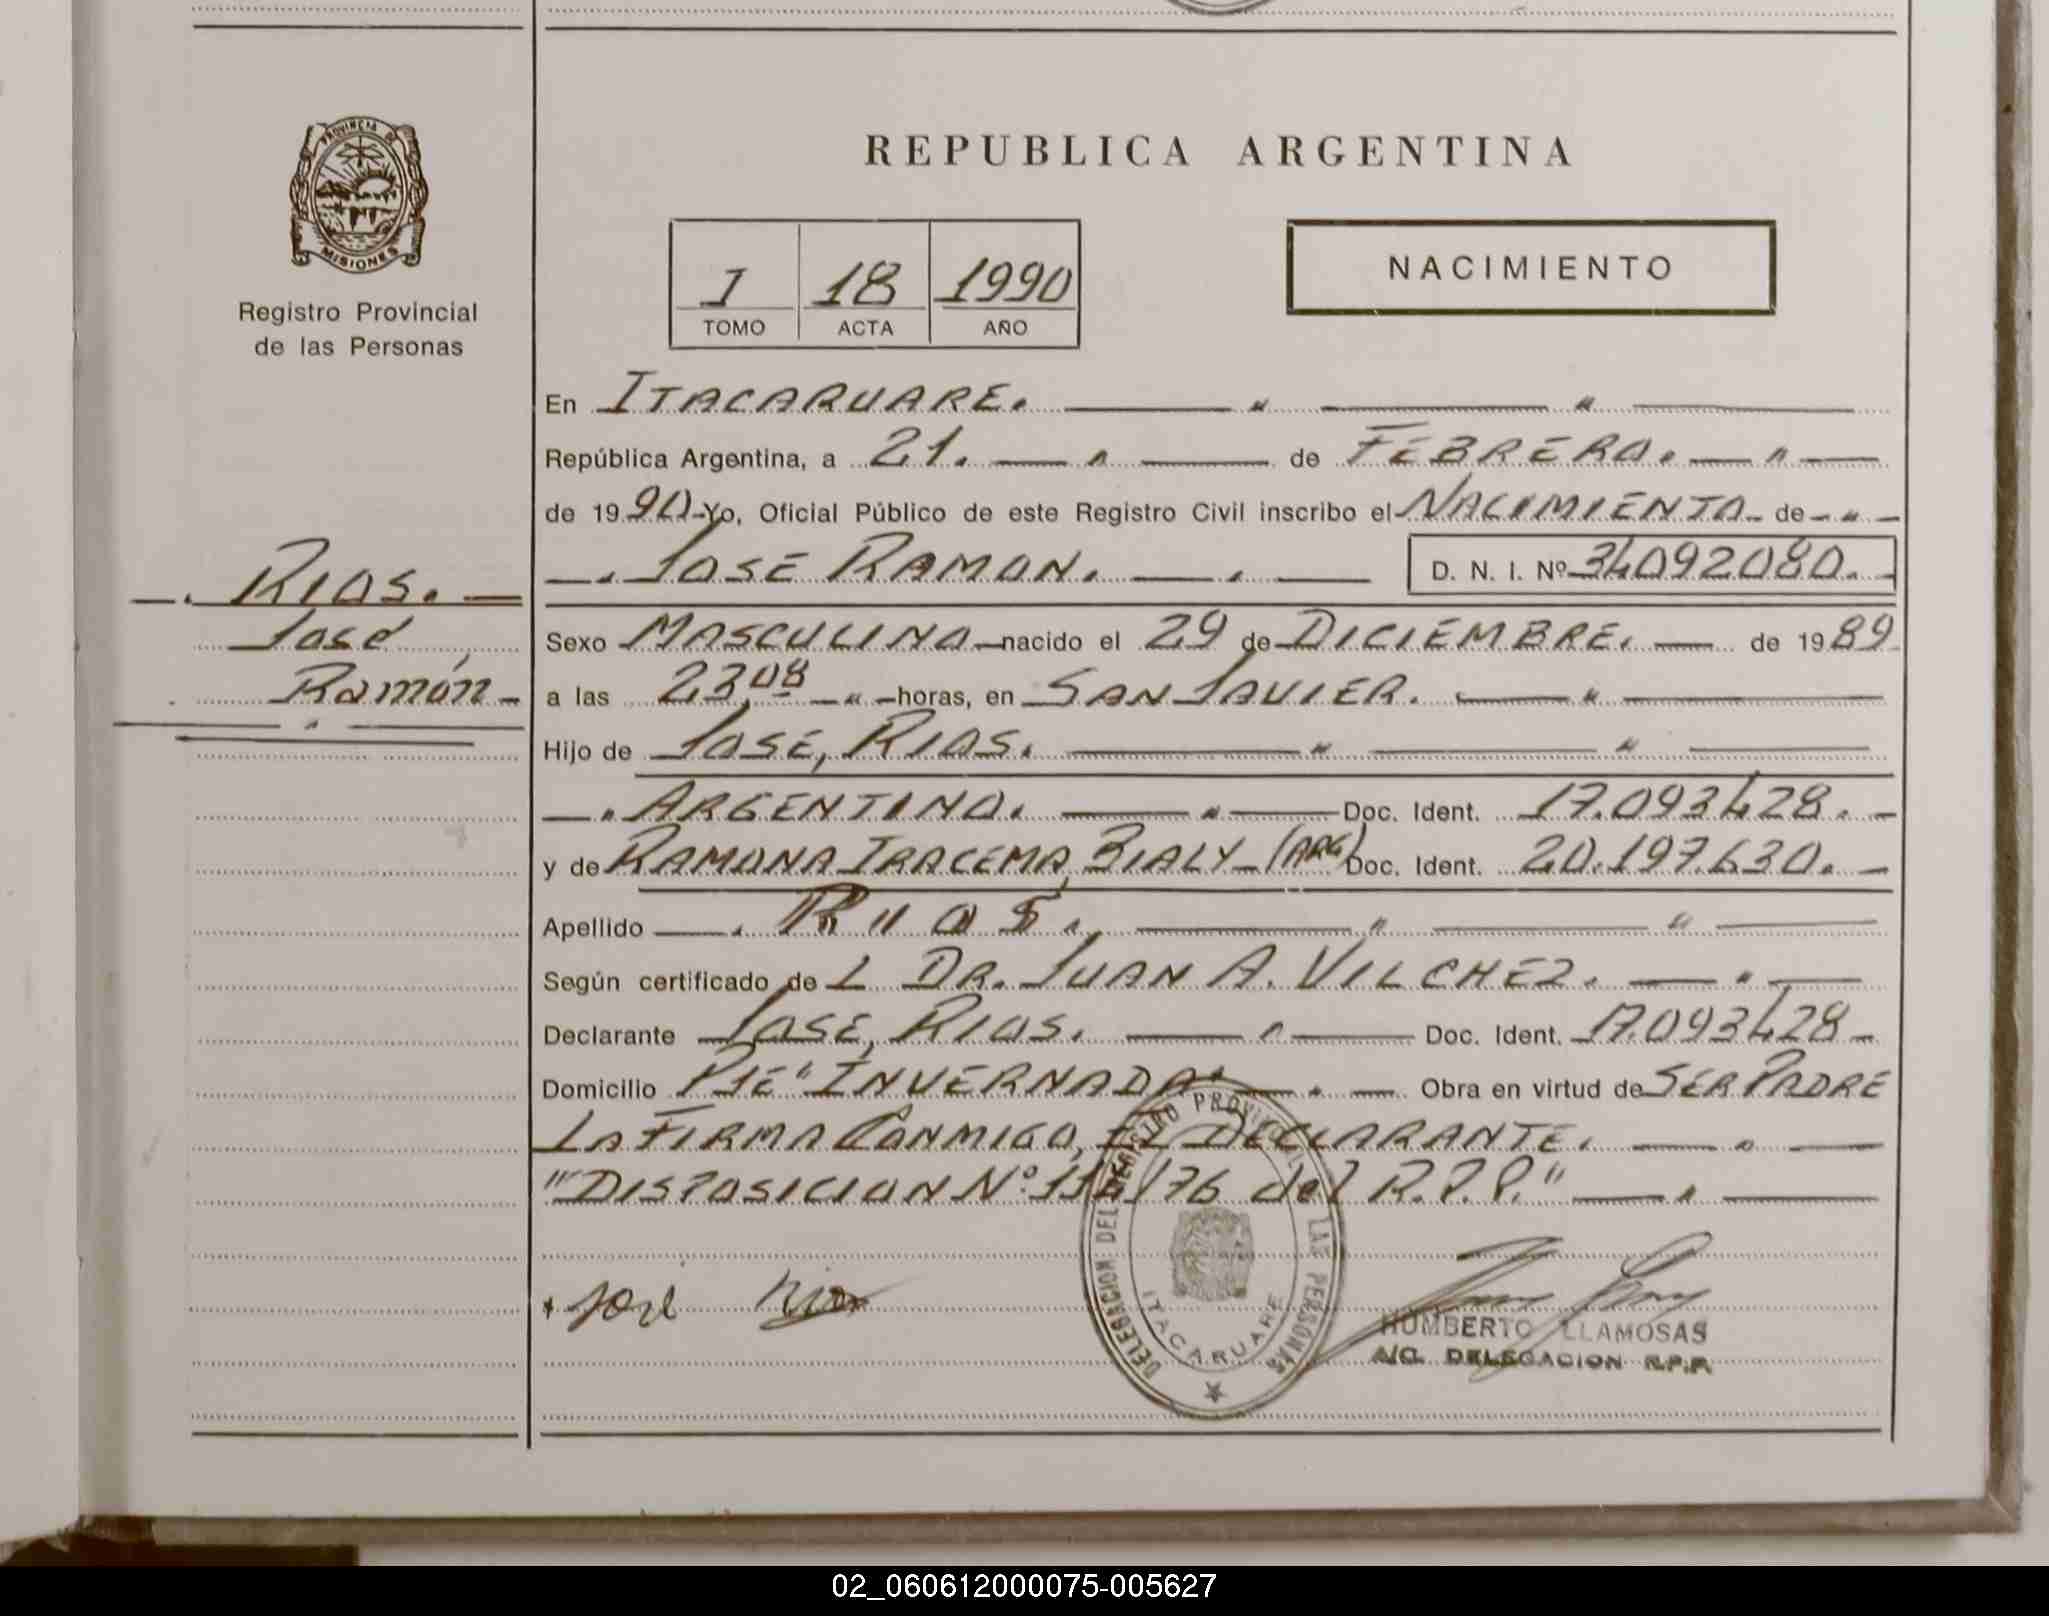 PROVINCIA DE
MISIONES
Registro Provincial
de las Personas
REPUBLICA ARGENTINA
I 18 1990
TOMO ACTA AÑO
NACIMIENTO
En ITACARUARE.
República Argentina, a 21. de FEBRERO.
de 1990 Yo, Oficial Público de este Registro Civil inscribo el NACIMIENTO de
JOSE RAMON. D. N. I. Nº 34092080.
RIOS.
José
Ramón
Sexo MASCULINO nacido el 29 de DICIEMBRE. de 1989
a las 23,08 horas, en SAN JAVIER.
Hijo de JOSE, RIOS.
ARGENTINO. Doc. Ident. 17.093428.
y de RAMONA IRACEMA, BIALY (ARG) Doc. Ident. 20.197.630.
Apellido RIOS.
Según certificado de L DR. JUAN A. VILCHEZ.
Declarante JOSE, RIOS. Doc. Ident. 17.093428
Domicilio PJE "INVERNADA" Obra en virtud de SER PADRE
LA FIRMA CONMIGO, EL DECLARANTE.
"DISPOSICION Nº /76 del R.P.P."
José Rios
DELEGACION DEL REGISTRO PROVINCIAL DE LAS PERSONAS
ITACARUARE
HUMBERTO LLAMOSAS
A/C. DELEGACION R.P.P.
02_060612000075-005627